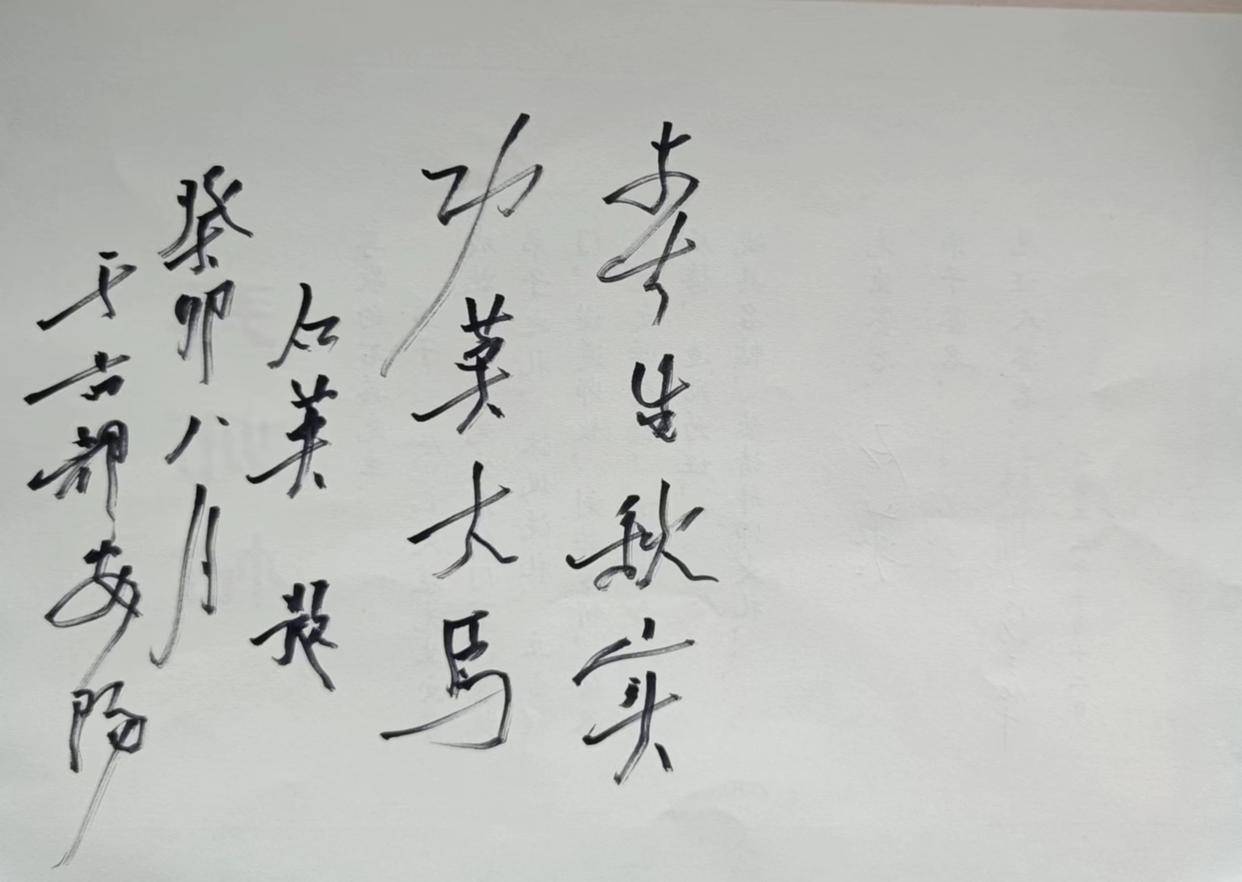 春生秋实
功莫大焉
题
癸卯八月
于古都安阳